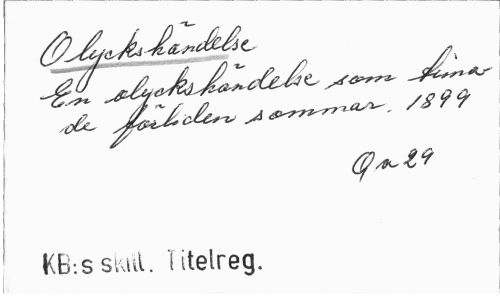 Olyckshändelse
En olyckshändelse som tima
de förliden sommar. 1899
Qa 29
KB:s skill. Titelreg.